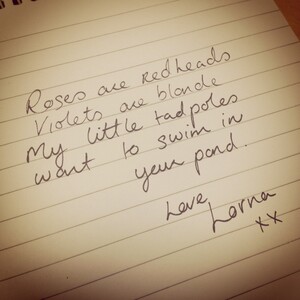 Roses are redheads
Violets are blonde
My little tadpoles
want to swim in
your pond.
Love
Lorna
xx